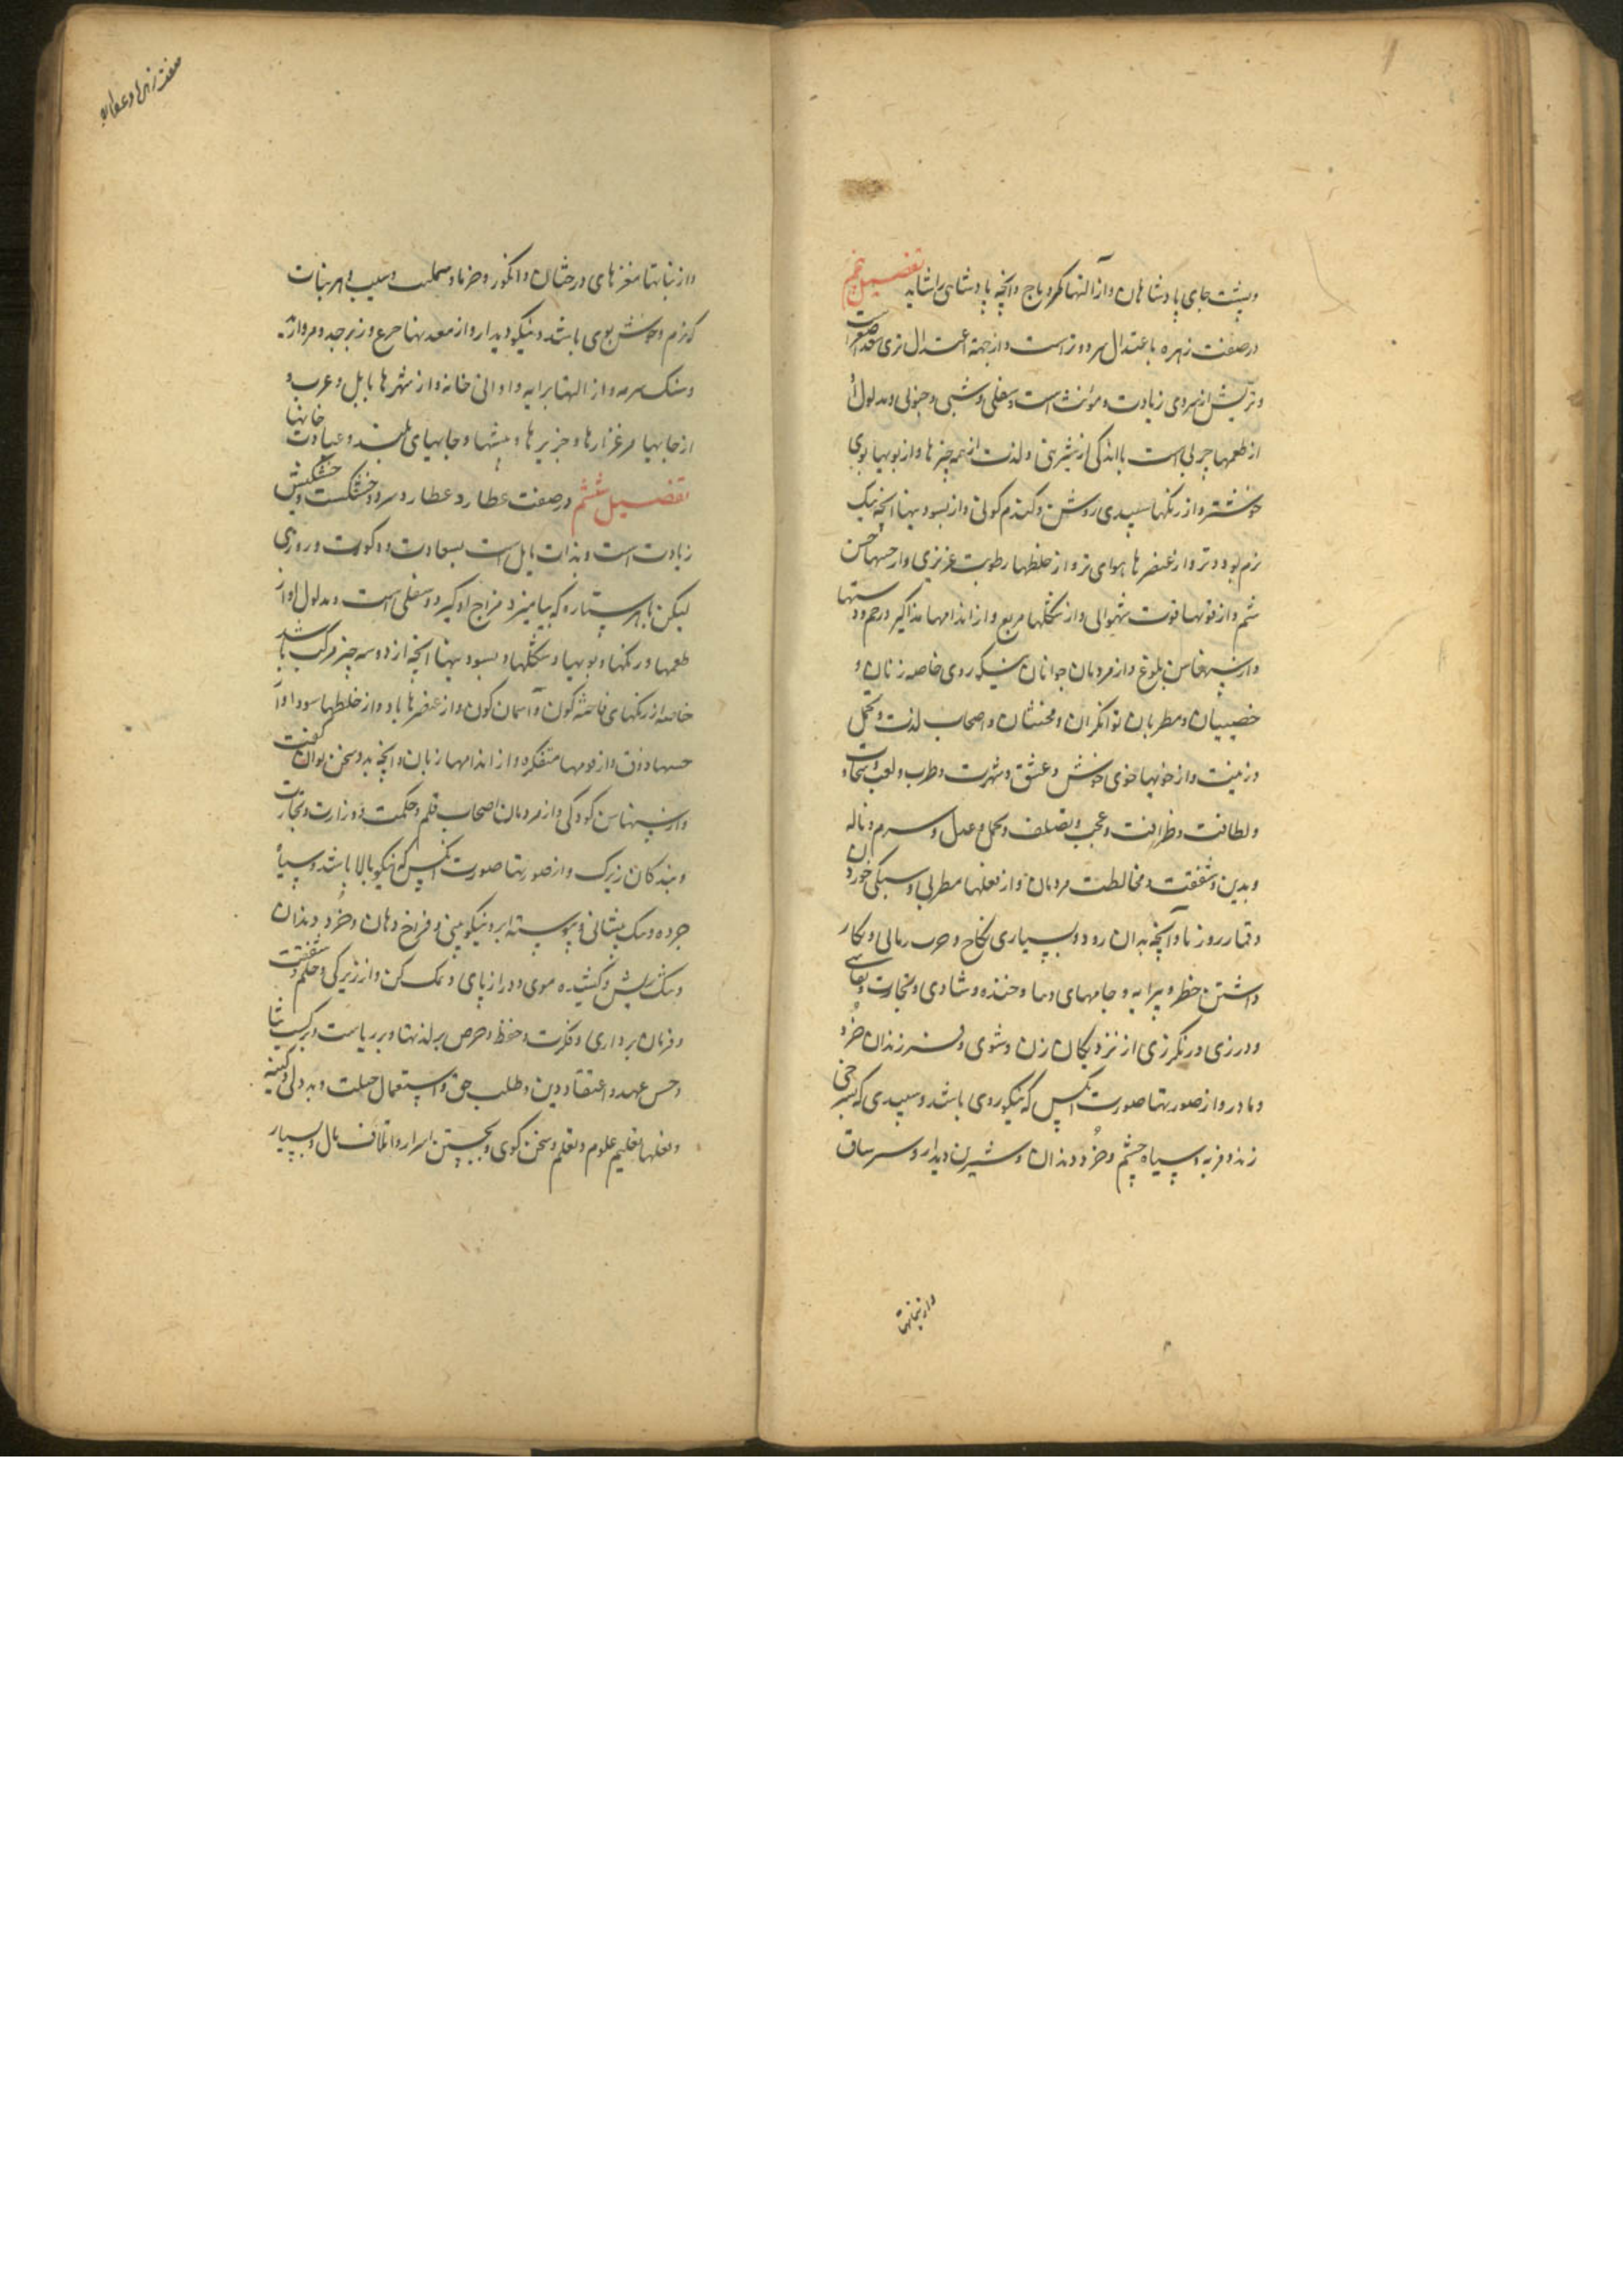 و پشت جای پادشاهان و از آلتها کمر و تاج و آنچه پادشاهی را شاید تفصیل پنجم
در صفت زهره باعتدال سرد و تر است و از جهة اعتدال تری سعد اصغرست
و تریش از سردی زیادت و مؤنث است و سفلی و شبی و جنوبی و مدلول او
از طعمها چربی است با اندکی از شیرینی و لذت از همه چیزها و از بویها بوی
خوشتر و از رنگها سپیدی روشن و گندم گونی و از بسودنیها آنچه نیک
نرم بود و تر و از عنصرها هوای تر و از خلطها رطوبت غریزی و از حسها حس
شم و از قوتها قوت شهوانی و از شکلها مربع و از اندامها مذاکیر و رحم و دستها
و از سنها سن بلوغ و از مردمان جوانان نیکو روی خاصه زنان و
خصییان و مطربان توانگران و مخنثان و اصحاب لذت و تجمل
و زینت و از خویها خوی خوش و عشق و شهرت و طرب و لعب و سخاوت
و لطافت و ظرافت و عجب و تصلف و تحمل و عدل و
و بدین و شفقت و مخالطت مردمان و از فعلها مطربی و سبکی خوردن
و قمار و آنچه بدان رود و بسیاری نکاح و
داشتن خطر و پیرایه و جامهای دیبا و خنده و شادی و تجارت و نقاشی
و درزی و رنگرزی از نزدیکان زن و شوی و فرزندان خرد
و مادر و از صورتها صورت آنکس که نیکو روی باشد و سپیدی که بسرخی
زند و فربه و سیاه چشم و خرد دندان و شیرین دیدار و سر ساق
و از نباتها
صفت زهره و عطارد
و از نباتها مغزهای درختان و انگور و خرما و و سیب و هر نبات
که نرم و خوش بوی باشد و نیکو دیدار و از معدنیها جزع و زبرجد و مروارید
و سنک سرمه و از التها پیرایه و اوانی خانه و از شهرها بابل و عرب و
از جایها مرغزارها و جزیرها و بیشها و جایهای بلند و عبادت خانها
تفصیل ششم در صفت عطارد عطارد سرد و خشکست و خشکیش
زیادت است و بذات مایل است بسعادت و ذکورت و روزی
لیکن با هر ستاره که بیامیزد مزاج او گیرد و سفلی است و مدلول او از
طعمها و رنگها و بویها و شکلها و بسودنیها آنچه از دو سه چیز مرکب باشد
خاصه از رنگهای فاخته گون و آسمان گون و از عنصرها باد و از خلطها سودا و از
حسها ذوق و از قوتها متفکره و از اندامها زبان و آنچه بدو سخن توان گفت
و از سنها سن کودکی و از مردمان اصحاب قلم و حکمت و وزارت و تجارت
و بندگان زیرک و از صورتها صورت آنکس که نیکو بالا باشد و سیاه
چرده و تنک پیشانی و پیوسته ابرو نیکو بینی و فراخ دهان و خرد دندان
و تنک ریش و کشیده موی و دراز پای و و از زیرکی و حلم و شفقت
و فرمان برداری و فکرت و حفظ و حرص بر لذتها و بر ریاست و بر کسب ثنا
و حسن عهد و اعتقاد دین و طلب حق و استعمال حیلت و بد دلی و کینه
و فعلها تعلیم علوم و تعلم و سخن گوی و بجستن اسرار و اتلاف مال و بسیار